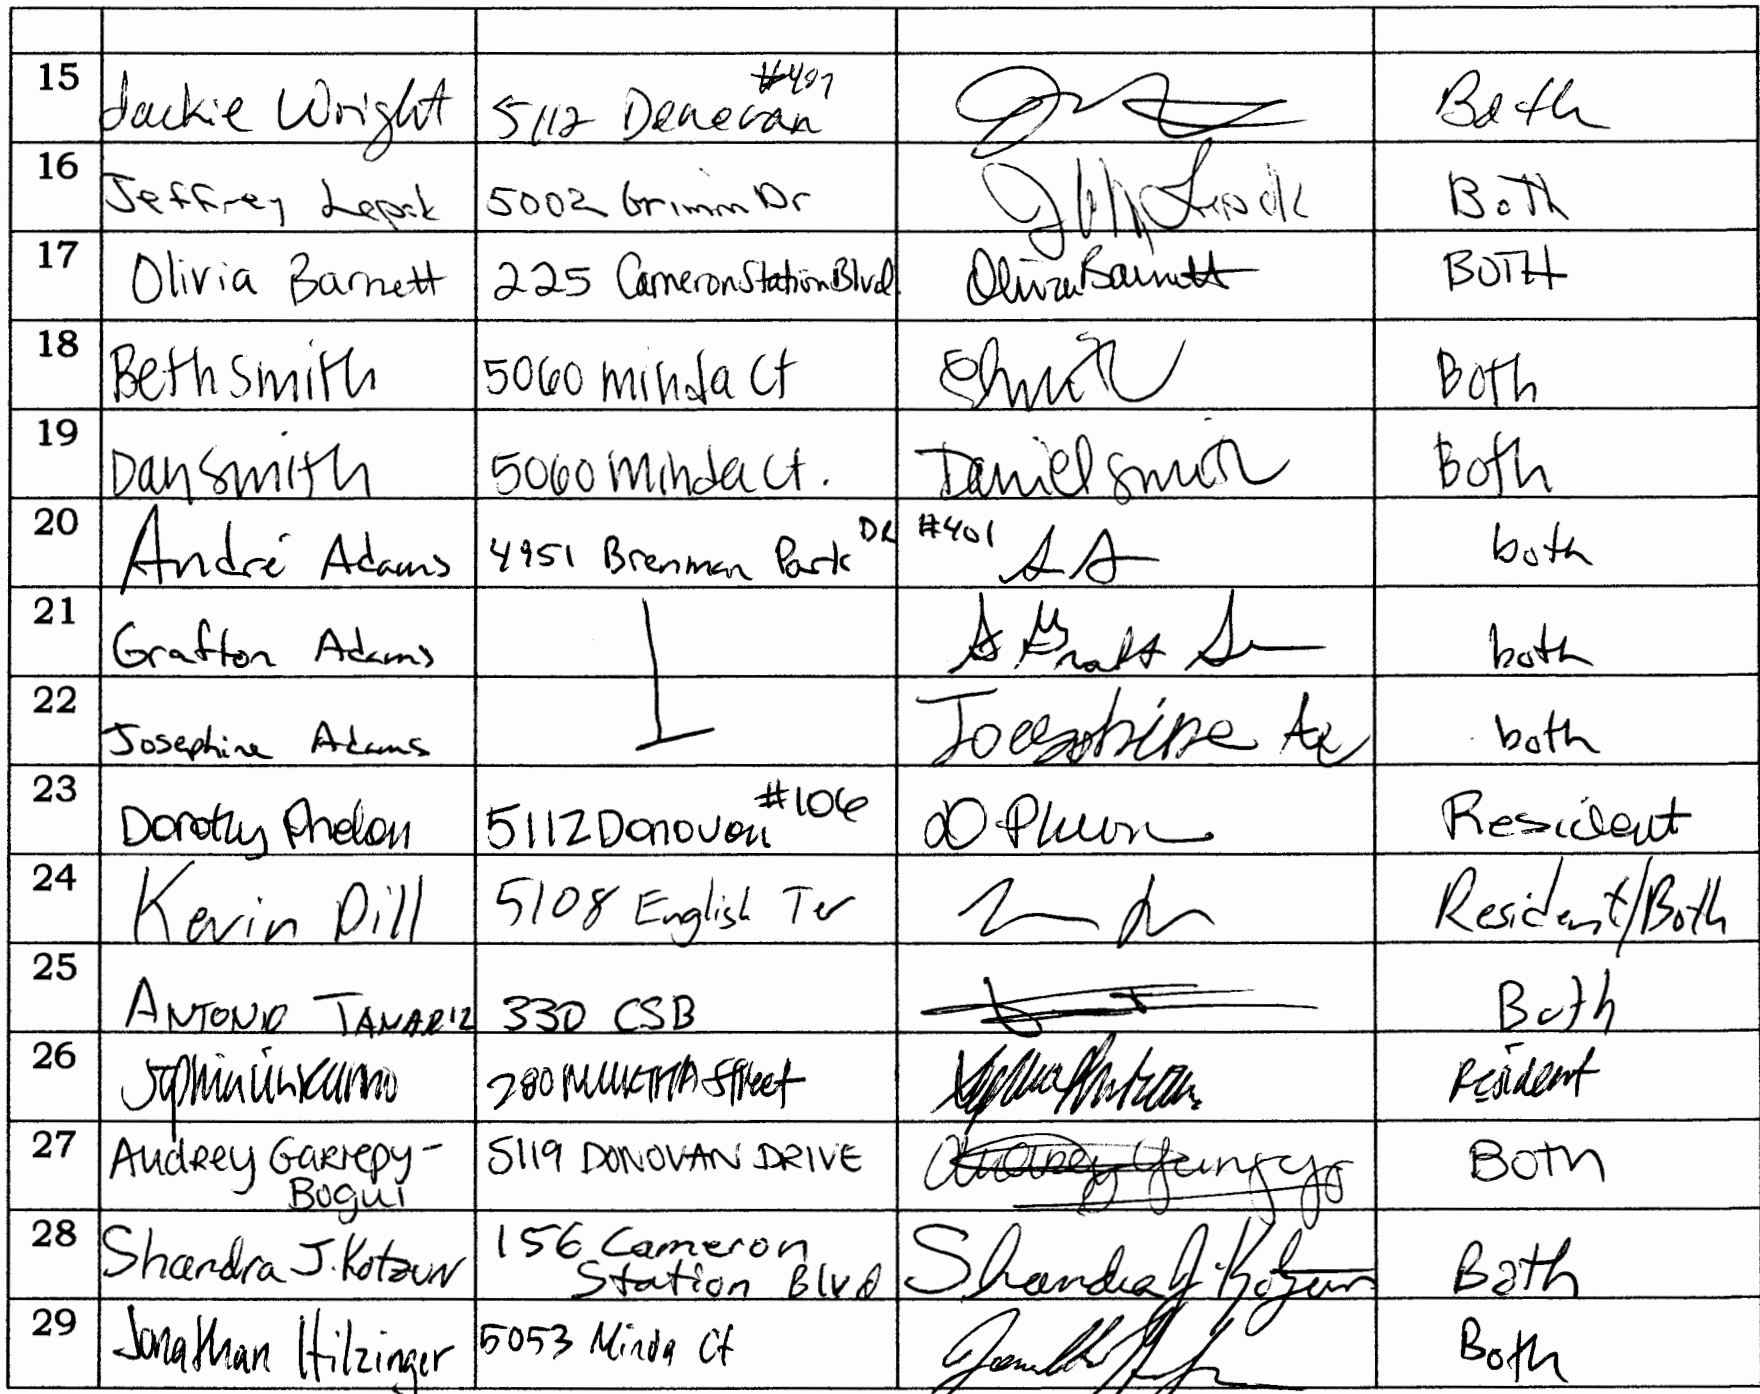 15 Jackie Wright 5112 Donovan #407 Both
16 Jeffrey Lepak 5002 Grimm Dr Jeff Lepak Both
17 Olivia Barnett 225 Cameron Station Blvd. Olivia Barnett BOTH
18 Beth Smith 5060 Minda Ct Both
19 Dan Smith 5060 Minda Ct. Daniel Smith Both
20 André Adams 4951 Brenman Park DR #401 both
21 Grafton Adams both
22 Josephine Adams Josephine both
23 Dorothy Phelan 5112 Donovan #106 Resident
24 Kevin Dill 5108 English Ter Resident/Both
25 ANTONIO TANARIZ 330 CSB Both
26 280 Street Resident
27 Audrey Gariepy-
Bogui 5119 DONOVAN DRIVE Audrey Both
28 Shandra J. Kotzun 156 Cameron
Station Blvd Shandra J. Kotzun Both
29 Jonathan Hilzinger 5053 Minda Ct Both